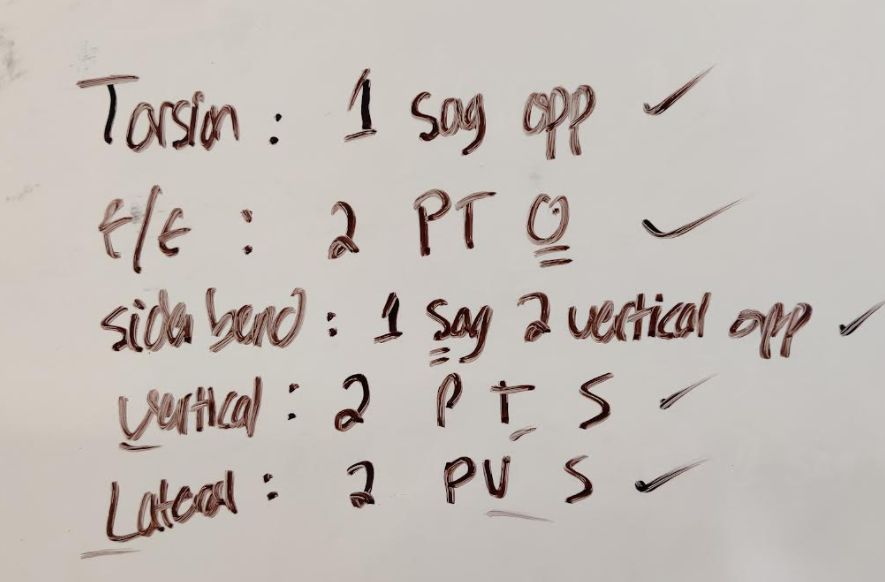 Torsion : 1 Sag opp ✓
F/E : 2 PT O ✓
side bend : 1 Sag 2 vertical opp ✓
Vertical : 2 P T S ✓
Lateral : 2 PV S ✓